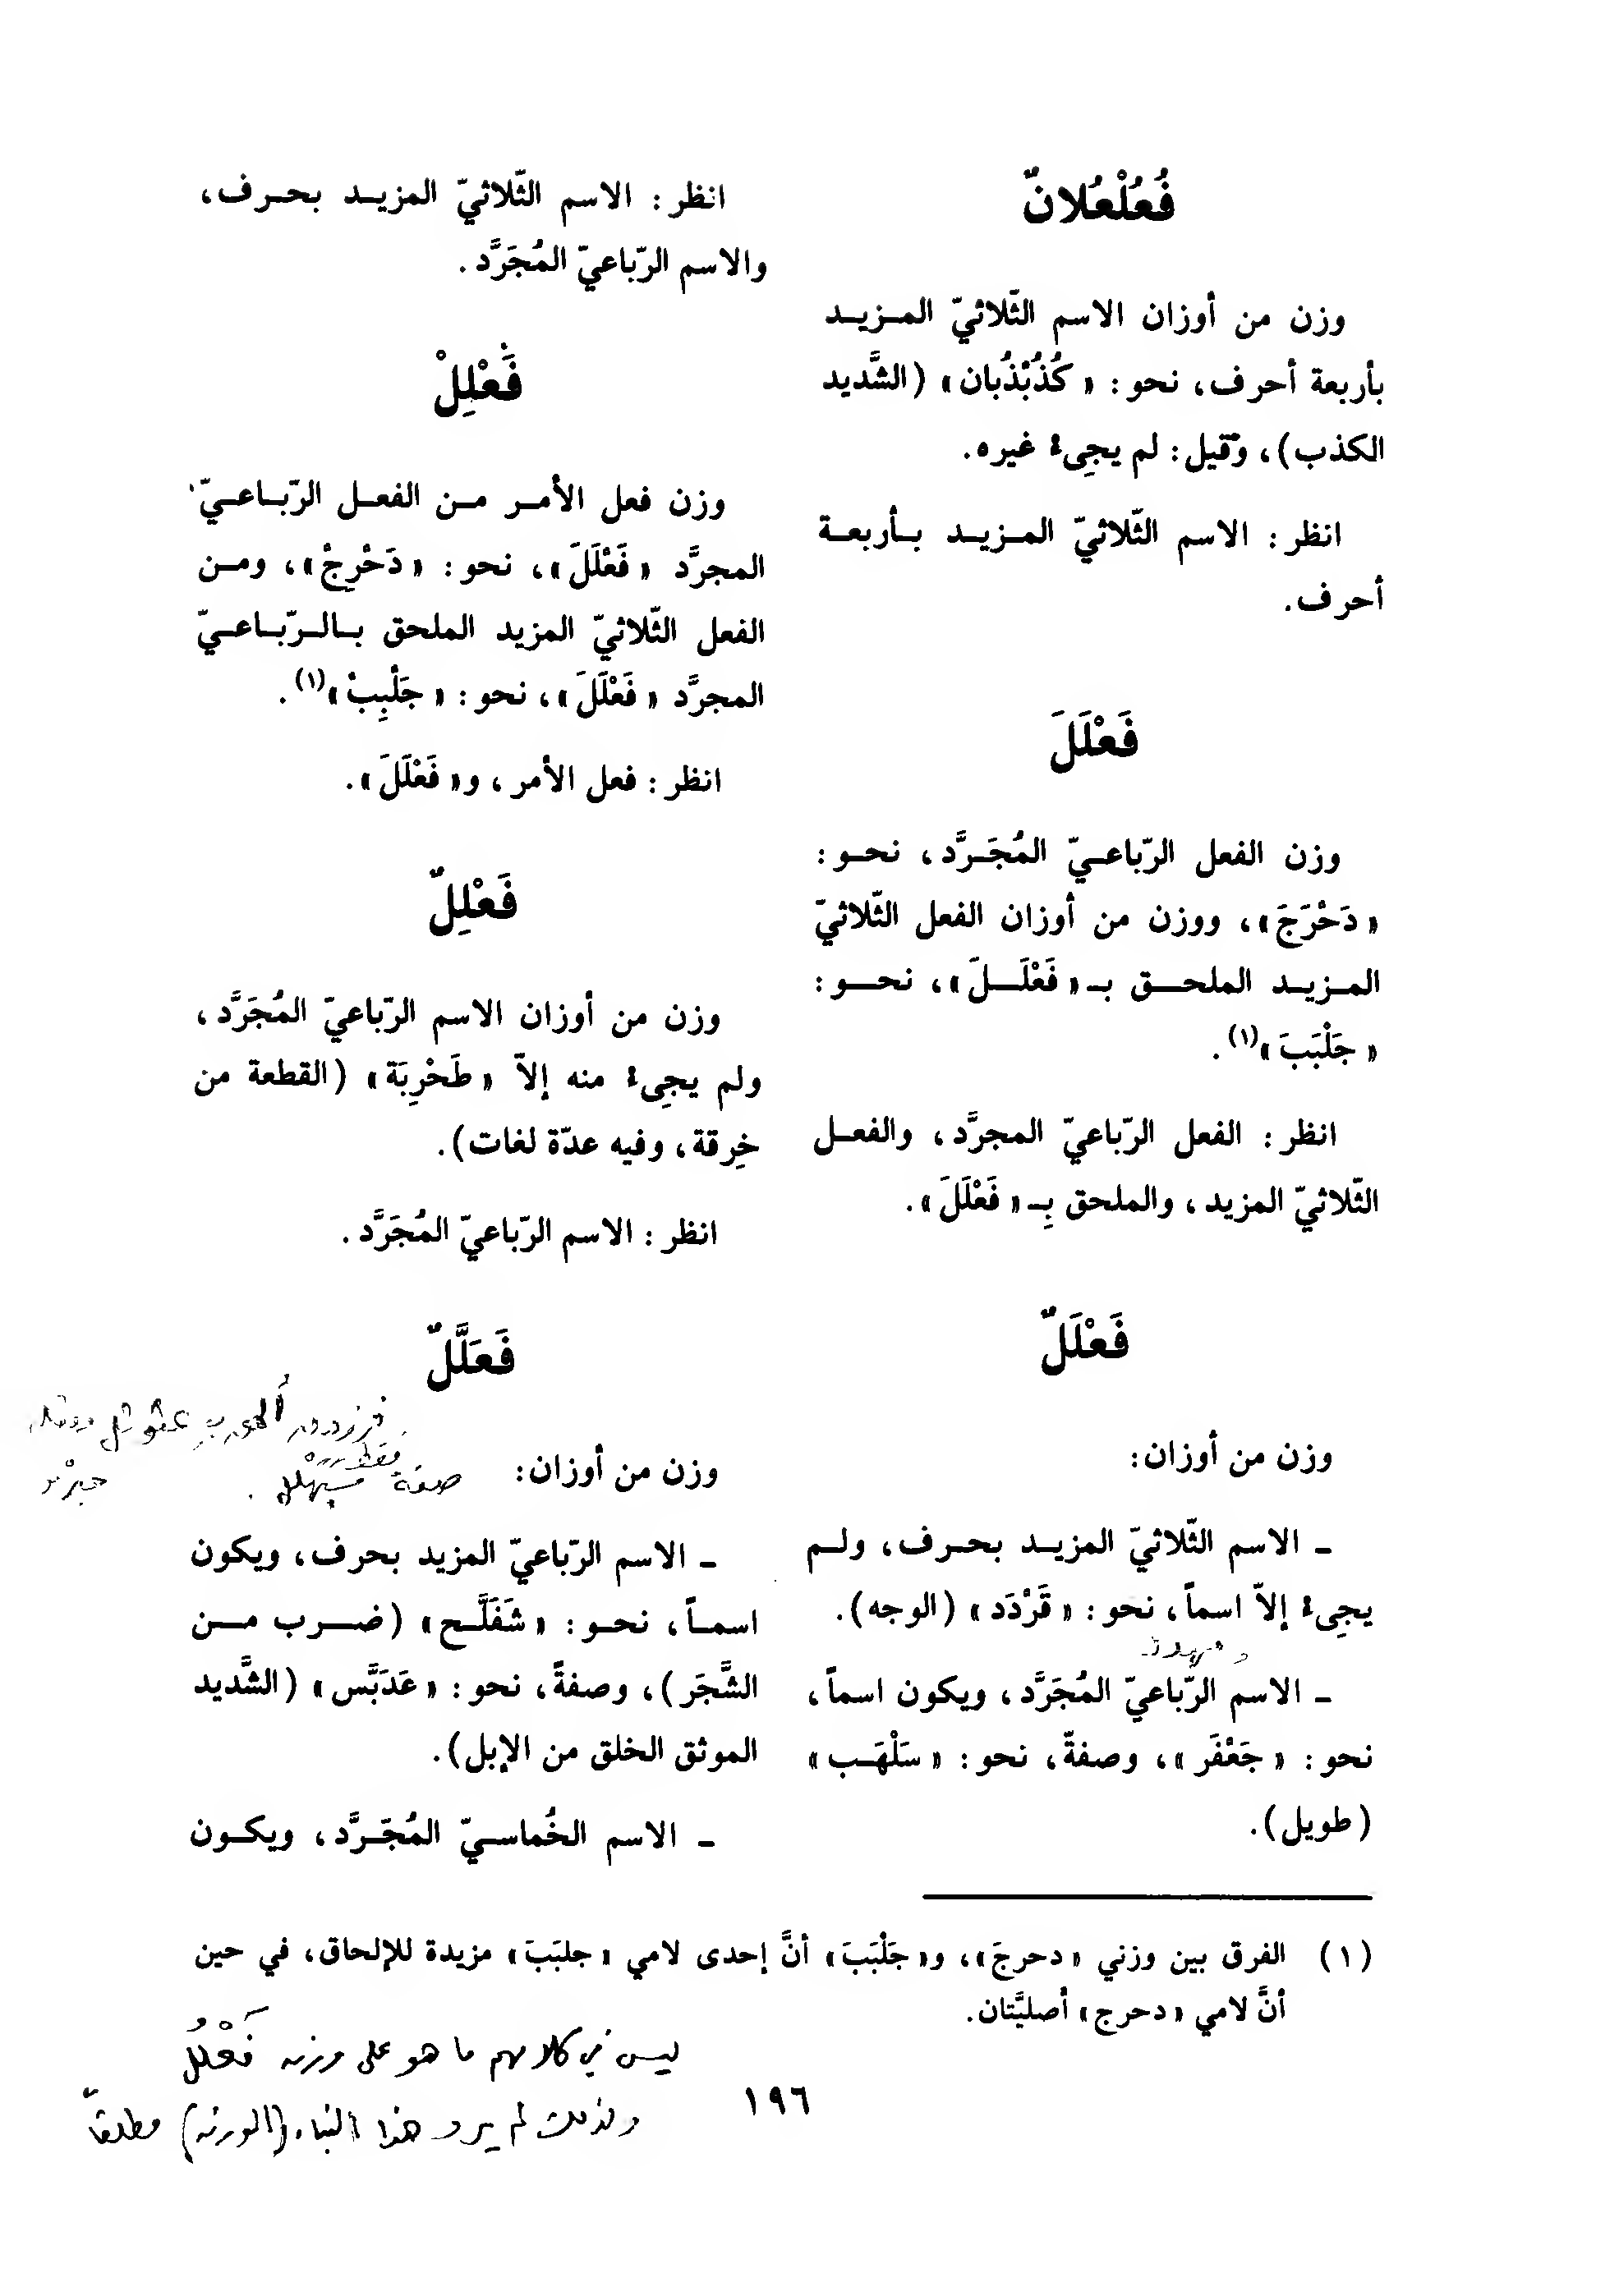 فُعُلْعُلانٌ
وزن من أوزان الاسم الثّلاثيّ المـزيـد
بأربعة أحرف، نحو: «كُذُبْذُبان» (الشَّديد
الكذب)، وقيل: لم يجِىء غيره.
انظر: الاسم الثّلاثيّ المـزيـد بـأربعـة
أحرف.
فَعْلَلَ
وزن الفعل الرّباعـيّ المُجَـرَّد، نحـو:
«دَحْرَجَ»، ووزن من أوزان الفعل الثّلاثيّ
المـزيـد الملحـق بـ«فَعْلَـلَ»، نحـو:
«جَلْبَبَ»(١).
انظر: الفعل الرّباعيّ المجرَّد، والفعـل
الثّلاثيّ المزيد، والملحق بِـ«فَعْلَلَ».
فَعْلَلٌ
وزن من أوزان:
ـ الاسم الثّلاثيّ المزيـد بحـرف، ولـم
يجِىء إلاّ اسماً، نحو: «قَرْدَد» (الوجه).
ـ الاسم الرّباعيّ المُجَرَّد، ويكون اسماً،
نحو: «جَعْفَر»، وصفةً، نحو: «سَلْهَـب»
(طويل).
انظر: الاسم الثّلاثيّ المزيـد بحـرف،
والاسم الرّباعيّ المُجَرَّد.
فَعْلِلْ
وزن فعل الأمـر مـن الفعـل الرّبـاعـيّ
المجرَّد «فَعْلَلَ»، نحو: «دَحْرِجْ»، ومـن
الفعل الثّلاثيّ المزيد الملحق بـالـرّبـاعـيّ
المجرَّد «فَعْلَلَ»، نحو: «جَلْبِبْ»(١).
انظر: فعل الأمر، و«فَعْلَلَ».
فَعْلِلٌ
وزن من أوزان الاسم الرّباعيّ المُجَرَّد،
ولم يجِىء منه إلاّ «طَحْرِبَة» (القطعة من
خِرقة، وفيه عدّة لغات).
انظر: الاسم الرّباعيّ المُجَرَّد.
فَعَلَّلٌ
وزن من أوزان:
ـ الاسم الرّباعيّ المزيد بحرف، ويكون
اسمـاً، نحـو: «شَفَلَّـح» (ضـرب مـن
الشَّجَر)، وصفةً، نحو: «عَدَبَّس» (الشَّديد
الموثق الخلق من الإبل).
ـ الاسم الخُماسـيّ المُجَـرَّد، ويكـون
(١) الفرق بين وزني «دحرجَ»، و«جَلْبَبَ» أنَّ إحدى لامي «جلبَبَ» مزيدة للإلحاق، في حين
أنَّ لامي «دحرج» أصليَّتان.
ليس في كلامهم ما هو على وزن فَعْلُلُ
ولذلك لم يرد هذا البناء (الوزن) مطلقاً
١٩٦